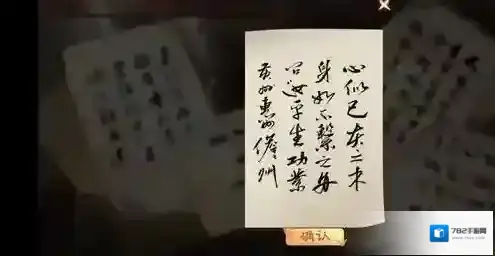 心似已灰之木
身如不繫之舟
问汝平生功業
黄州惠州儋州
确认
782手游网